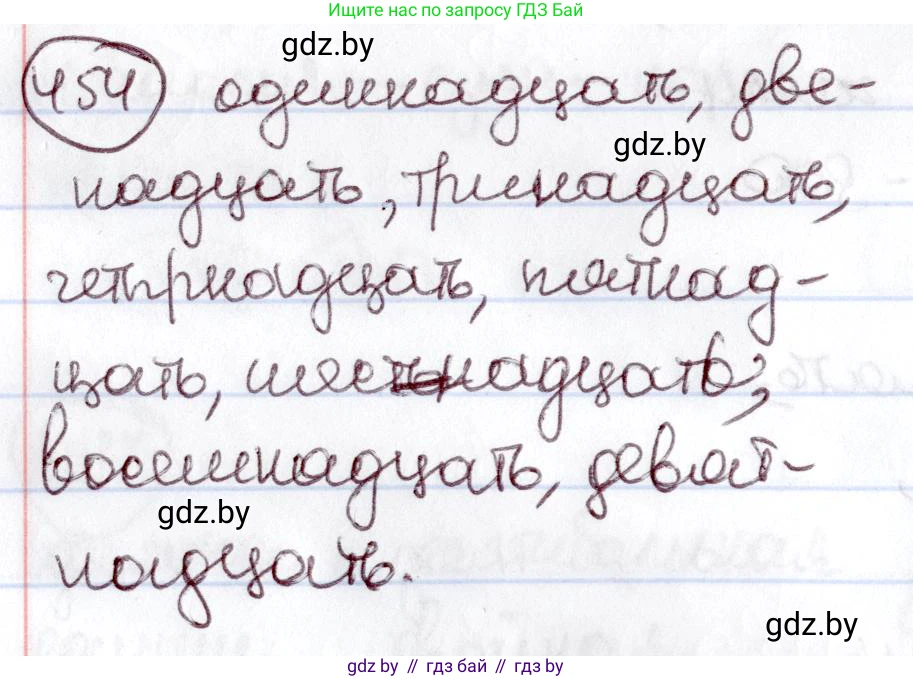 Ищите нас по запросу ГДЗ Бай
gdz.by
454 одиннадцать, две-
gdz.by
надцать, тринадцать,
четырнадцать, пятнад-
цать, шестнадцать,
восемнадцать, девят-
gdz.by
надцать.
gdz.by
gdz.by // гдз бай // гдз by